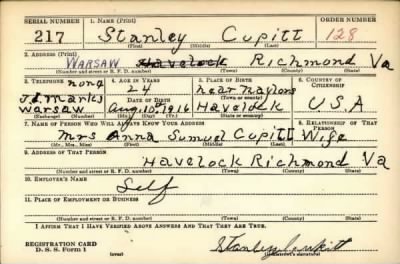 SERIAL NUMBER 1. NAME (Print) ORDER NUMBER
217 Stanley Cupitt 128
(First) (Middle) (Last)
2. ADDRESS (Print)
WARSAW Havelock Richmond Va
(Number and street or R. F. D. number) (Town) (County) (State)
3. TELEPHONE 4. AGE IN YEARS 5. PLACE OF BIRTH 6. COUNTRY OF CITIZENSHIP
none 24 near Naylors
Warsaw DATE OF BIRTH Havelock U.S.A
Aug 10 1916
(Exchange) (Number) (Mo.) (Day) (Yr.) (Town or county) (State or country)
7. NAME OF PERSON WHO WILL ALWAYS KNOW YOUR ADDRESS 8. RELATIONSHIP OF THAT PERSON
Mrs Anna Sumuel Cupitt Wife
(Mr., Mrs., Miss) (First) (Middle) (Last)
9. ADDRESS OF THAT PERSON
Havelock Richmond Va
(Number and street or R. F. D. number) (Town) (County) (State)
10. EMPLOYER'S NAME
Self
11. PLACE OF EMPLOYMENT OR BUSINESS
(Number and street or R. F. D. number) (Town) (County) (State)
I AFFIRM THAT I HAVE VERIFIED ABOVE ANSWERS AND THAT THEY ARE TRUE.
REGISTRATION CARD
D. S. S. Form 1 (over) Stanley Cupitt
(Registrant's signature)